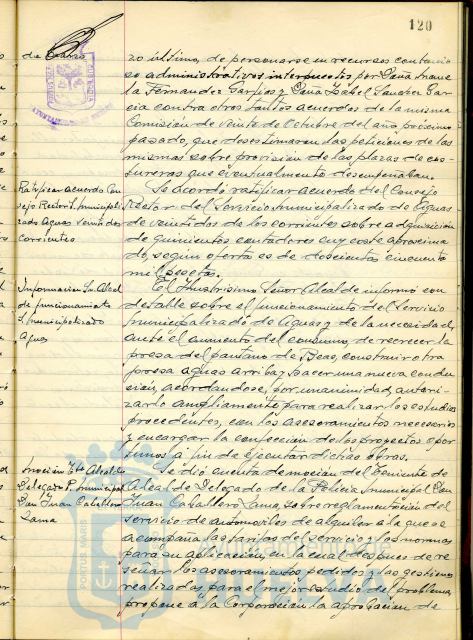 120
de Marzo
zo último, de personarse en recursos contencio
so administrativos interpuestos por Doña Manue
la Fernandez Garfias y Doña Isabel Sanchez Gar
cia contra otros tantos acuerdos de la misma
Comisión de veinte de Octubre del año próximo
pasado, que desestimaron las peticiones de las
mismas sobre provisión de las plazas de cos-
tureras que eventualmente desempeñaban.
Ratificar acuerdo Con
sejo Rector S. municipali
zado Aguas veintidos
corrientes
Se acordó ratificar acuerdo del Consejo
Rector del Servicio Municipalizado de Aguas
de veintidos de los corrientes sobre adquisición
de quinientos contadores cuyo coste aproxima
do, según oferta es de doscientas cincuenta
mil pesetas.
Información Sr. Alcal
de funcionamiento
S. municipalizado
Aguas
El Ilustrisimo Señor Alcalde informó con
detalle sobre el funcionamiento del Servicio
Municipalizado de Aguas y de la necesidad,
ante el aumento del consumo, de recrecer la
presa del pantano de Beas, construir otra
presa aguas arriba y hacer una nueva conduc
ción, acordandose, por unanimidad, autori-
zarlo ampliamente para realizar los estudios
procedentes, con los asesoramientos necesarios
y encargar la confección de los proyectos opor
tunos a fin de ejecutar dichas obras.
Moción Tte Alcalde
Delegado P. municipal
Don Juan Caballero
Lama
Se dió cuenta de moción del Teniente de
Alcalde Delegado de la Policía Municipal Don
Juan Caballero Lama, sobre reglamentación del
servicio de automoviles de alquiler a la que se
acompaña las tarifas del servicio y las normas
para su aplicación, en la cual despues de re
señar los asesoramientos pedidos y las gestiones
realizadas para el mejor estudio del problema,
propone a la Corporación la aprobación de
PORTUS MARIS